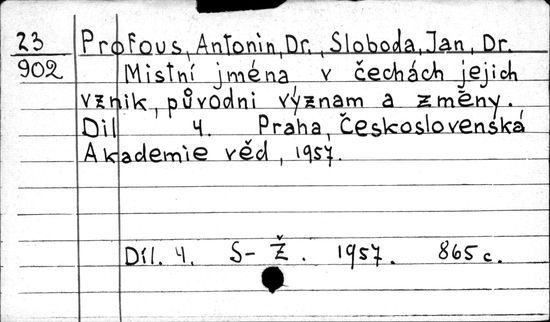 23 Profous, Antonin, Dr., Sloboda, Jan, Dr.
902 Mistní jména v čechách jejich
vznik, původni význam a změny.
Dil 4. Praha, Československá
Akademie věd, 1957.
Díl. 4. S-Ž. 1957. 865 c.